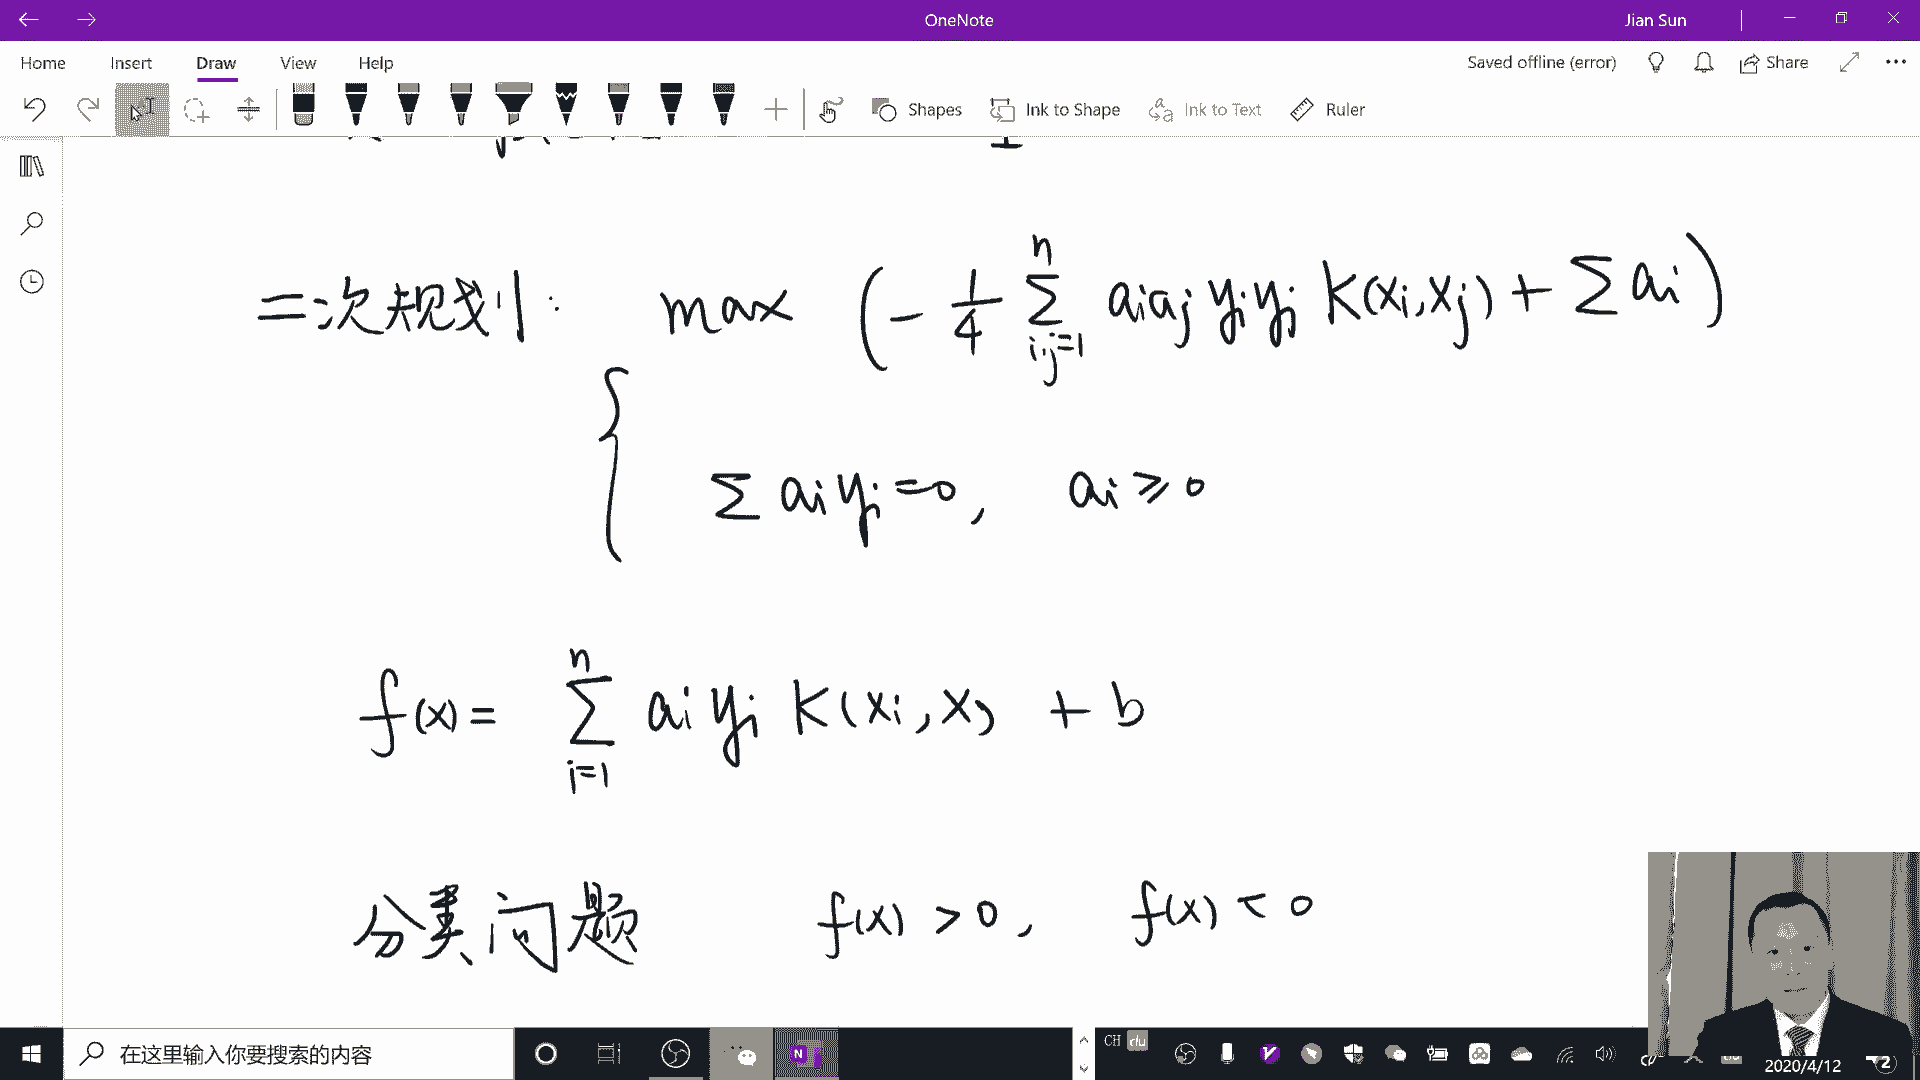 OneNote
Jian Sun
Home Insert Draw View Help
Saved offline (error) Share
Shapes Ink to Shape Ink to Text Ruler
二次规划: max (-1/4 ∑_{i,j=1}^{n} aᵢaⱼ yᵢyⱼ K(xᵢ,xⱼ) + ∑ aᵢ)
{ ∑ aᵢyᵢ=0, aᵢ ≥ 0
f(x) = ∑_{i=1}^{n} aᵢ yᵢ K(xᵢ, x) + b
分类问题 f(x) > 0, f(x) < 0
在这里输入你要搜索的内容
CH
2020/4/12
2